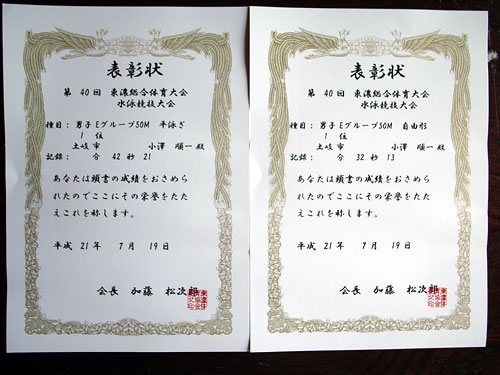 表彰状
第 40回 東濃総合体育大会
水泳競技大会
種目： 男子 Eグループ50M 平泳ぎ
1 位
土岐市 小澤 順一 殿
記録： 分 42 秒 21
あなたは頭書の成績をおさめら
れたのでここにその栄誉をたた
えこれを称します。
平成 21 年 7 月 19 日
会長 加藤 松次郎
表彰状
第 40回 東濃総合体育大会
水泳競技大会
種目： 男子 Eグループ50M 自由形
1 位
土岐市 小澤 順一 殿
記録： 分 32 秒 13
あなたは頭書の成績をおさめら
れたのでここにその栄誉をたた
えこれを称します。
平成 21 年 7 月 19 日
会長 加藤 松次郎